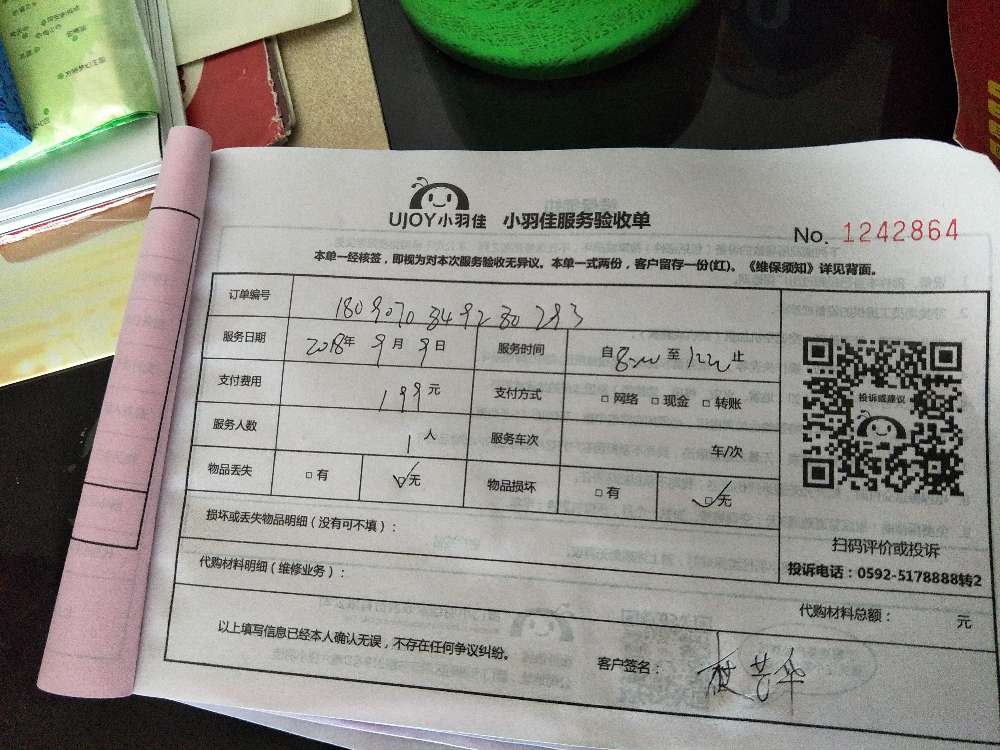 UJOY小羽佳 小羽佳服务验收单
No. 1242864
本单一经核签，即视为对本次服务验收无异议。本单一式两份，客户留存一份(红)。《维保须知》详见背面。
订单编号 1809070849280293
服务日期 2018年 9月 9日 服务时间 自 8:00 至 12:00 止
支付费用 199元 支付方式 □网络 □现金 □转账
服务人数 1人 服务车次 车/次
物品丢失 □有 ☑无 物品损坏 □有 ☑无
投诉或建议
扫码评价或投诉
投诉电话：0592-5178888转2
损坏或丢失物品明细（没有可不填）：
代购材料明细（维修业务）：
代购材料总额： 元
以上填写信息已经本人确认无误，不存在任何争议纠纷。
客户签名：